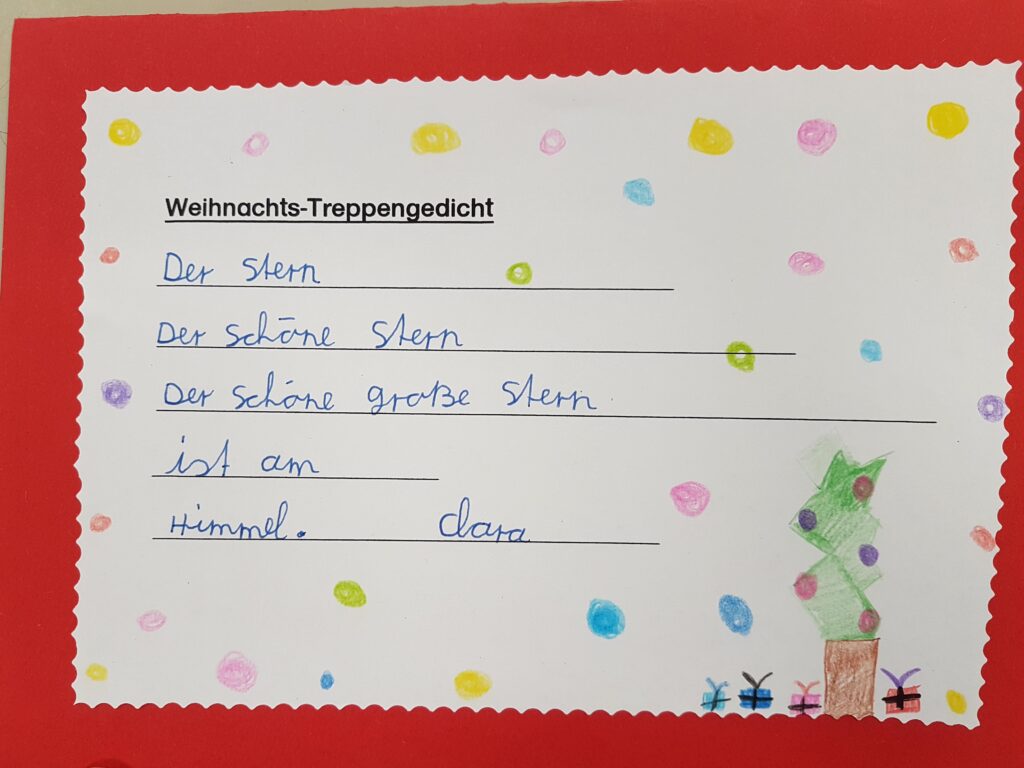 Weihnachts-Treppengedicht
Der Stern
Der schöne Stern
Der schöne große Stern
ist am
Himmel. Clara